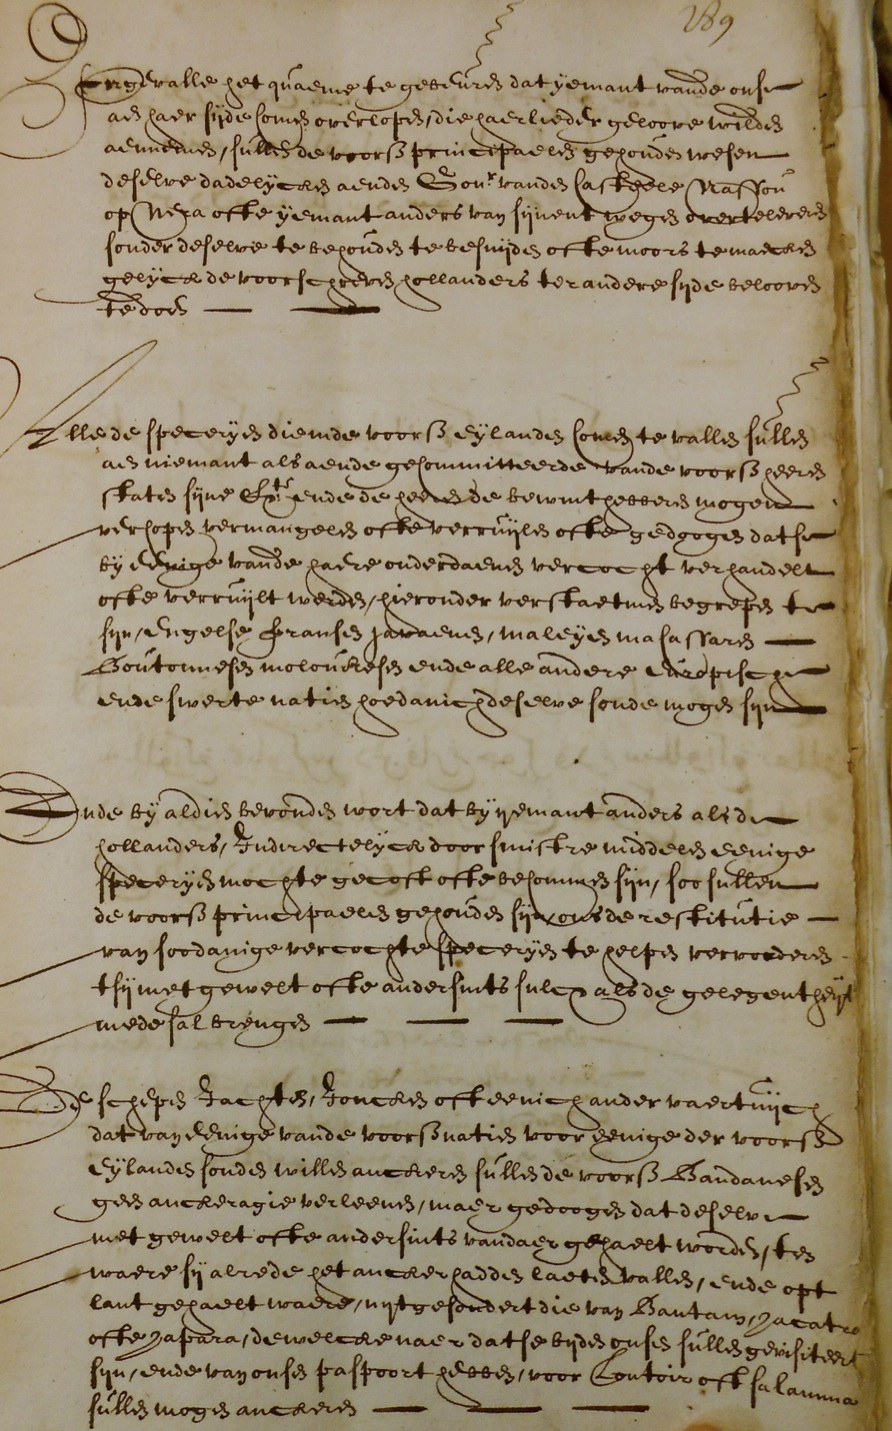 189
Ingevalle het quaeme te gebeuren dat yemant vande onse
aen haer sijde comen overlopen, die haerlieder geloove wilden
aennemen, sullen de voors principaelen gehouden wesen
deselve dadelijcken aenden Gour vanden Casteele Nassou
op Nera ofte yemant anders van sijnent wegen overteleveren
sonder deselve te behouden te besnijden ofte moors te maecken
gelijck de voorschreven hollanders ter andere sijde belooven
te doen
Alle de speceryen die inde voors eylanden comen te vallen sullen
aen niemant als aende gecommitteerde vande voors heeren
staten sijne Extie ende de heeren de bewinthebberen mogen
vercopen vermangelen ofte verruijlen ofte gedoogen datse
by eenige vande haere onderdaenen vercocht verhandelt
ofte verruijlt werden, hieronder verstaetmen begrepen te
sijn, Engelse franse Javaenen, maleyen macassaren
Boutonnesen molouckesen ende alle andere europische
ende swerte natien hoedanich deselve soude mogen sijn
Ende by aldien bevonden wort dat by yemant anders als de
hollanders, Indirectelijck door sinistre middelen eenige
specerijen mochte gecoft ofte becommen sijn, soo sullen
de voors principaelen gehouden sijn ons de restitutie
van soodanige vercochte speceryen te helpen vervorderen
tsij met gewelt ofte andersints sulcx als de gelegentheijt
mede sal brengen
De schepen Jachten, Joncken ofte eenich ander vaertuijch
dat van eenige vande voors natien voor eenige der voors
Eylanden souden willen anckeren sullen de voors Bandanesen
geen anckeragie verleenen, maer gedoogen dat deselve
met gewelt ofte andersints van daer gehaelt worden, ten
waere sij alrede het ancker hadden laeten vallen, ende opt
lant gehaelt waere, uytgesondert die van Bantam, Jacatra
ofte Japara, dewelcke naer datse byden onsen sullen gevisiteert
sijn, ende van onsen paspoort hebben, voor Lontoir oft salamma
sullen mogen anckeren